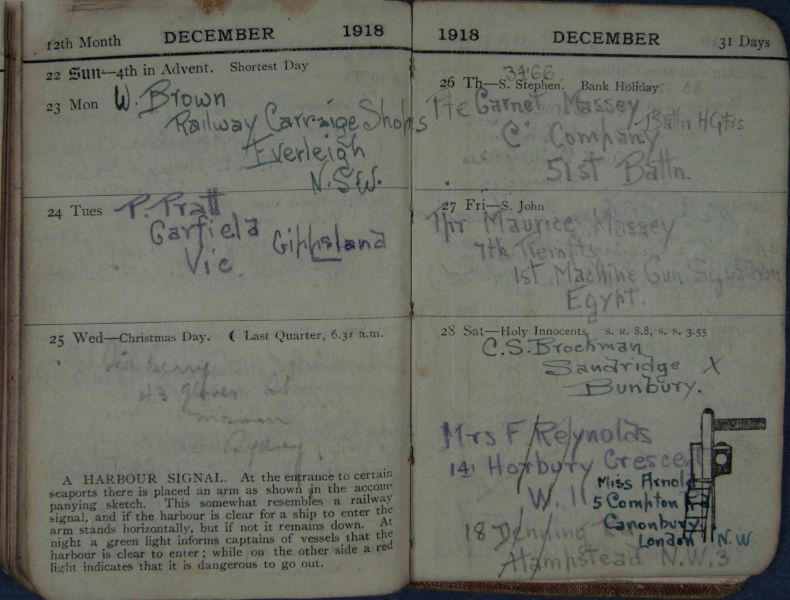 12th Month DECEMBER 1918
22 Sun—4th in Advent. Shortest Day
23 Mon W. Brown
Railway Carraige Shops
Everleigh
N.S.W.
24 Tues P. Pratt
Garfield
Gippsland
Vic.
25 Wed—Christmas Day. ☾ Last Quarter, 6.31 a.m.
43 Glover St
Mosman
Sydney
A HARBOUR SIGNAL. At the entrance to certain
seaports there is placed an arm as shown in the accom-
panying sketch. This somewhat resembles a railway
signal, and if the harbour is clear for a ship to enter the
arm stands horizontally, but if not it remains down. At
night a green light informs captains of vessels that the
harbour is clear to enter; while on the other side a red
light indicates that it is dangerous to go out.
1918 DECEMBER 31 Days
3466
26 Th—S. Stephen. Bank Holiday
Pte Garnet Massey
Battn HQtrs
"C" Company
51st Battn.
27 Fri—S. John
Tpr Maurice Massey
7th Remfts
1st Machine Gun Squadron
Egypt.
28 Sat—Holy Innocents. S. R. 8.8, S. S. 3.55
C.S. Brockman
Sandridge X
Bunbury.
Mrs F. Reynolds
141 Horbury Crescent
W. 11
Miss Arnold
5 Compton Rd
Canonbury
London N.W.
18 Denning Rd
Hampstead N.W.3